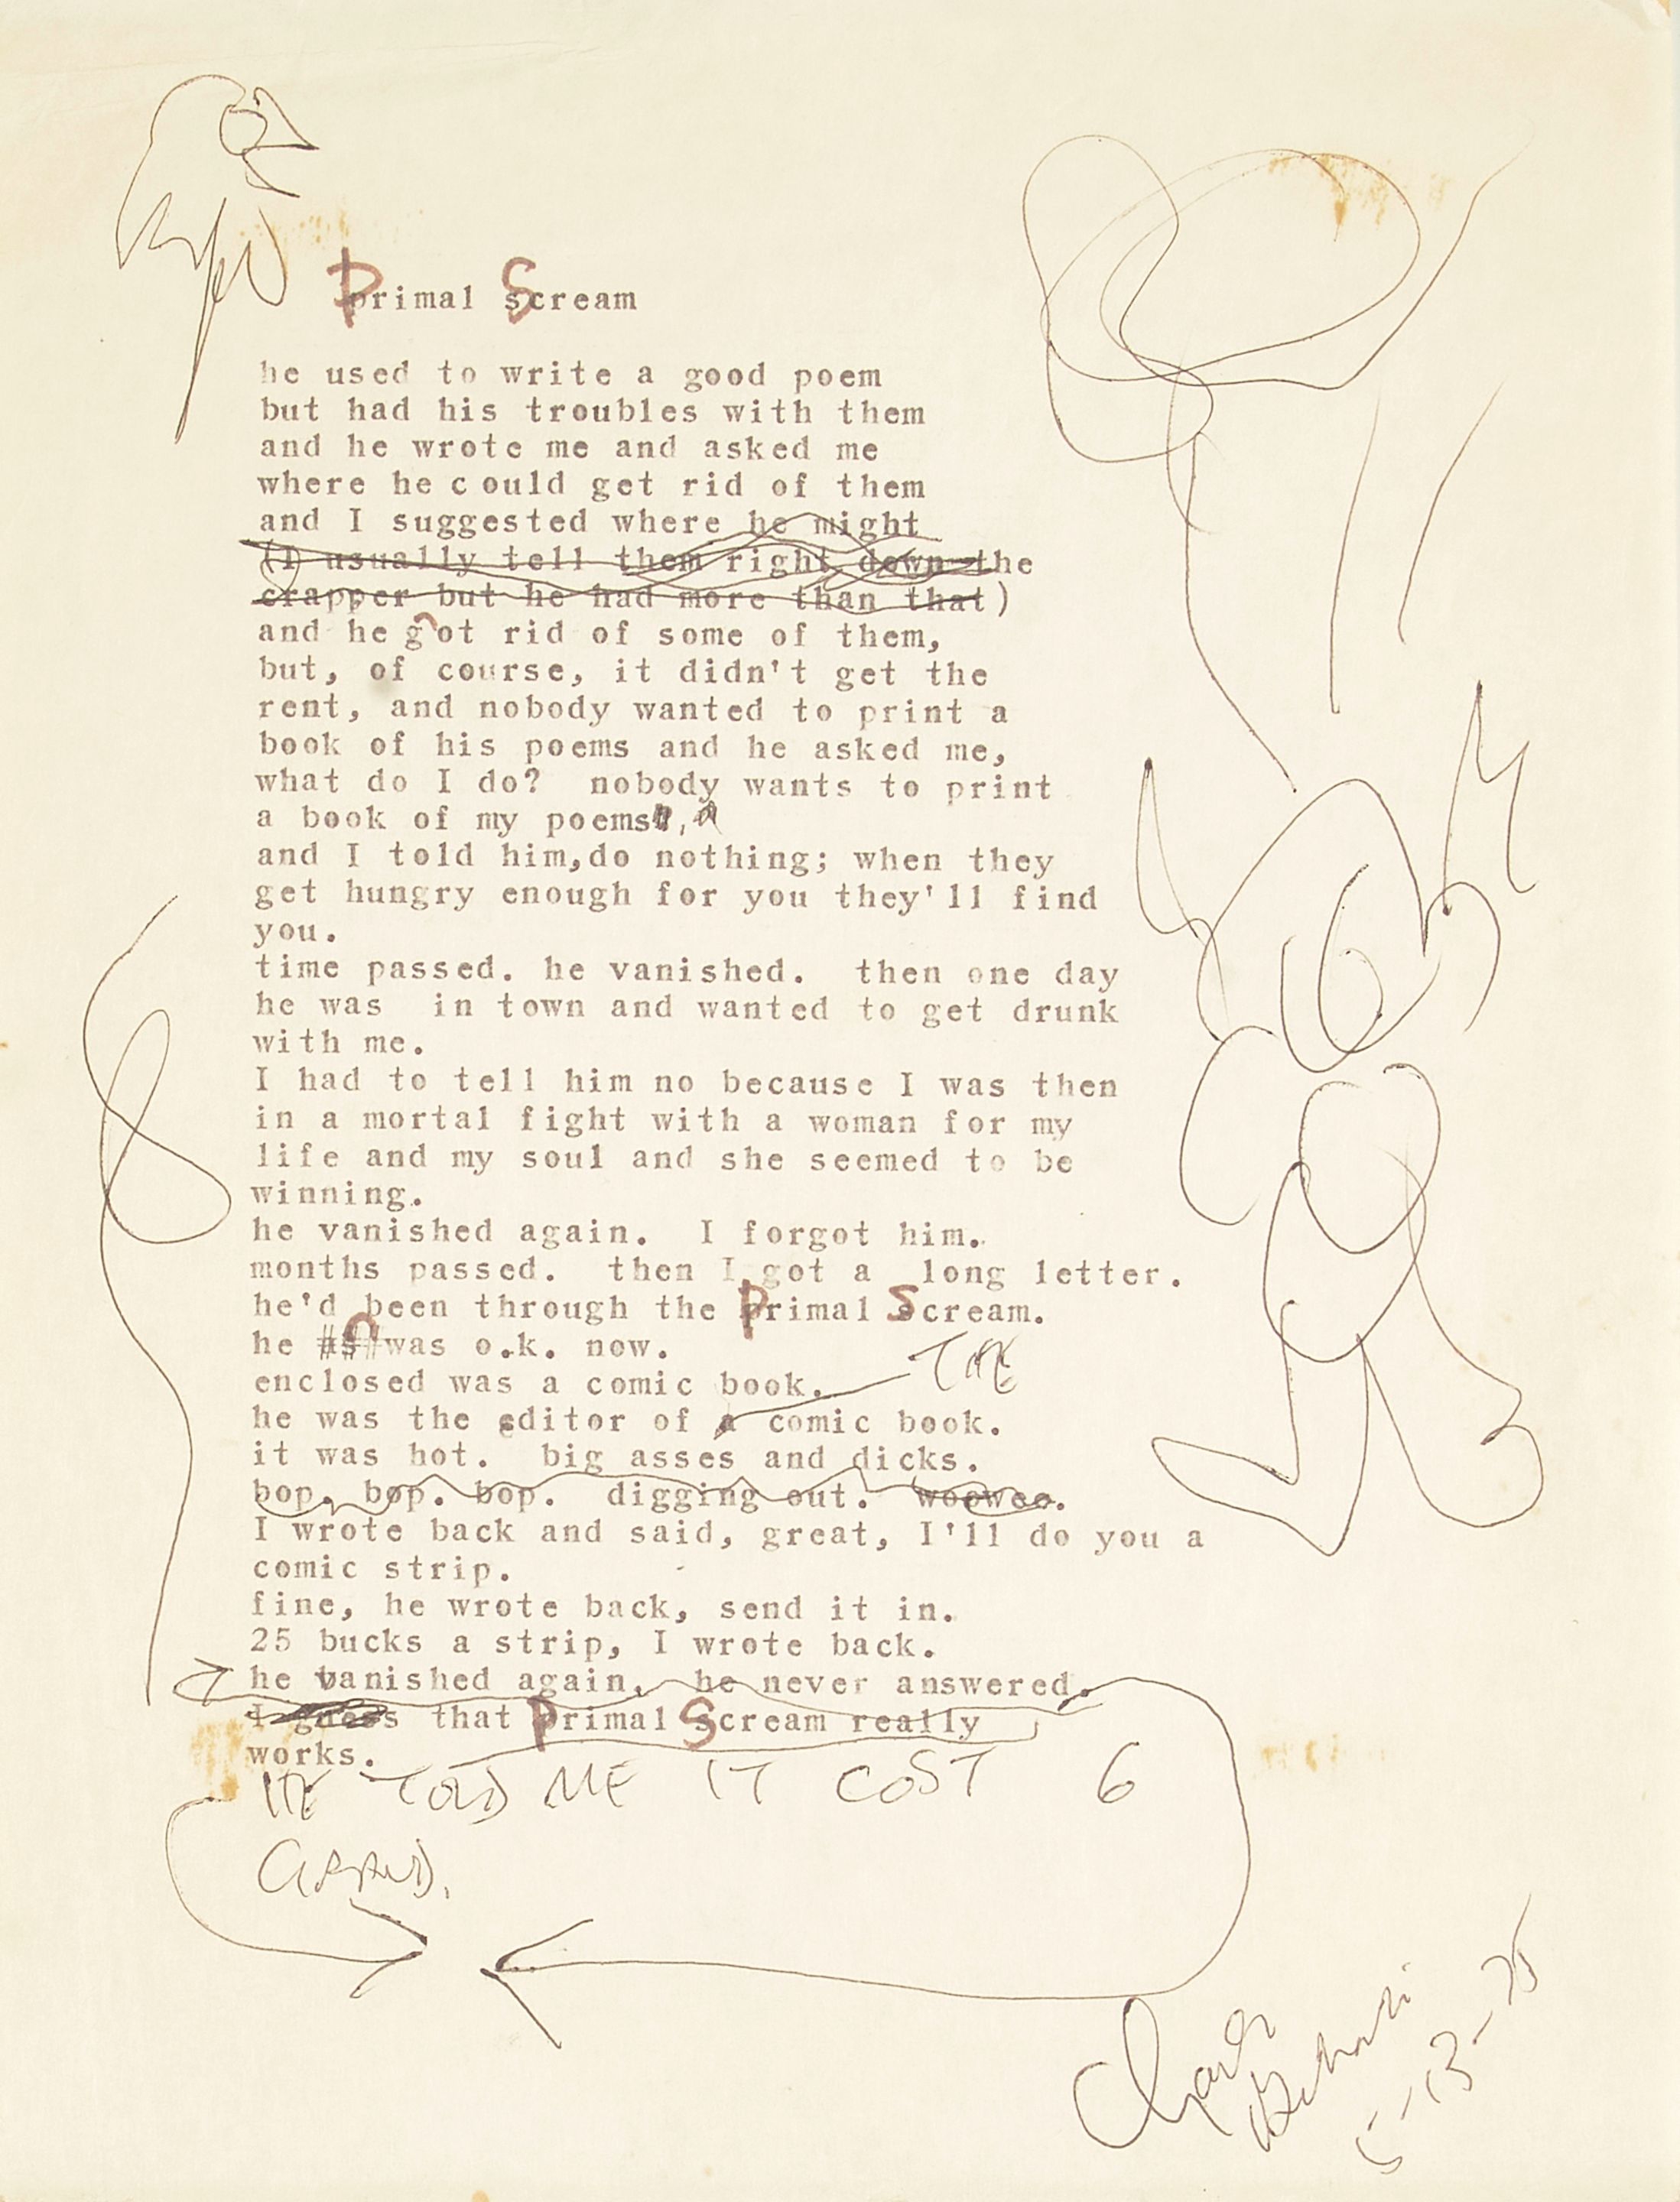 Primal Scream
he used to write a good poem
but had his troubles with them
and he wrote me and asked me
where he could get rid of them
and I suggested where he might
(I usually tell them right down the
crapper but he had more than that)
and he got rid of some of them,
but, of course, it didn't get the
rent, and nobody wanted to print a
book of his poems and he asked me,
what do I do?  nobody wants to print
a book of my poems,
and I told him,do nothing; when they
get hungry enough for you they'll find
you.
time passed. he vanished.  then one day
he was  in town and wanted to get drunk
with me.
I had to tell him no because I was then
in a mortal fight with a woman for my
life and my soul and she seemed to be
winning.
he vanished again.  I forgot him.
months passed.  then I got a  long letter.
he'd been through the Primal Scream.
he ### was o.k. now.
enclosed was a comic book. THE
he was the editor of a comic book.
it was hot.  big asses and dicks.
bop. bop. bop.  digging out.  woowee.
I wrote back and said, great, I'll do you a
comic strip.
fine, he wrote back, send it in.
25 bucks a strip, I wrote back.
he vanished again, he never answered.
I guess that Primal Scream really
works.
HE TOLD ME IT COST 6
GRAND.
Charles
Bukowski
5-13-75